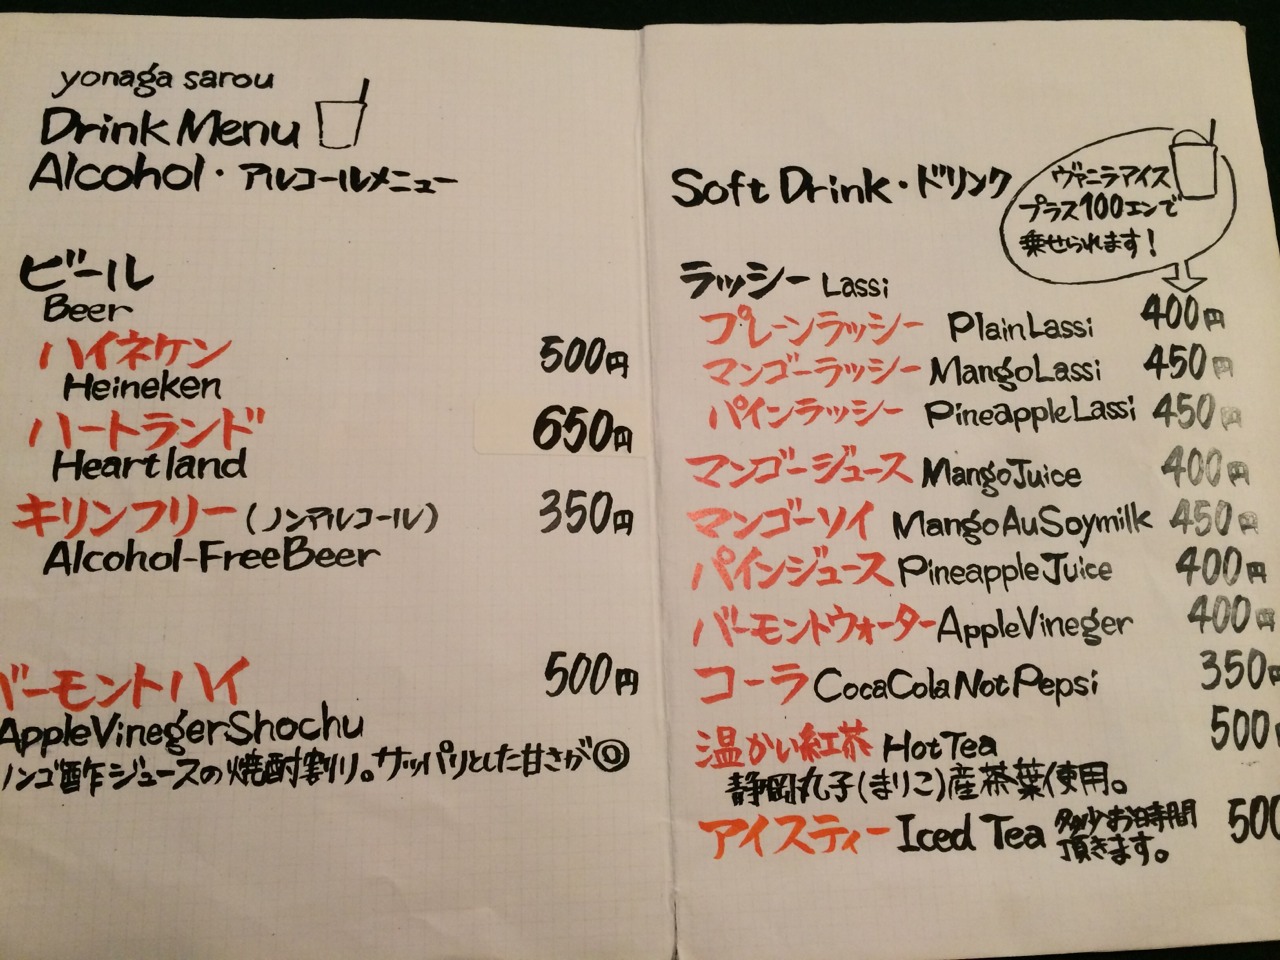 yonaga sarou
Drink Menu
Alcohol・アルコールメニュー
ビール
Beer
ハイネケン 500円
Heineken
ハートランド 650円
Heartland
キリンフリー(ノンアルコール) 350円
Alcohol-FreeBeer
バーモントハイ 500円
AppleVinegerShochu
ンゴ酢ジュースの焼酎割り。サッパリとした甘さが◎
Soft Drink・ドリンク
ヴァニラアイス
プラス100エンで
乗せられます!
ラッシー Lassi
プレーンラッシー PlainLassi 400円
マンゴーラッシー MangoLassi 450円
パインラッシー PineappleLassi 450円
マンゴージュース MangoJuice 400円
マンゴーソイ MangoAuSoymilk 450円
パインジュース PineappleJuice 400円
バーモントウォーター AppleVineger 400円
コーラ CocaColaNotPepsi 350円
温かい紅茶 HotTea 500
静岡丸子(まりこ)産茶葉使用。
アイスティー Iced Tea 多少お時間 500
頂きます。